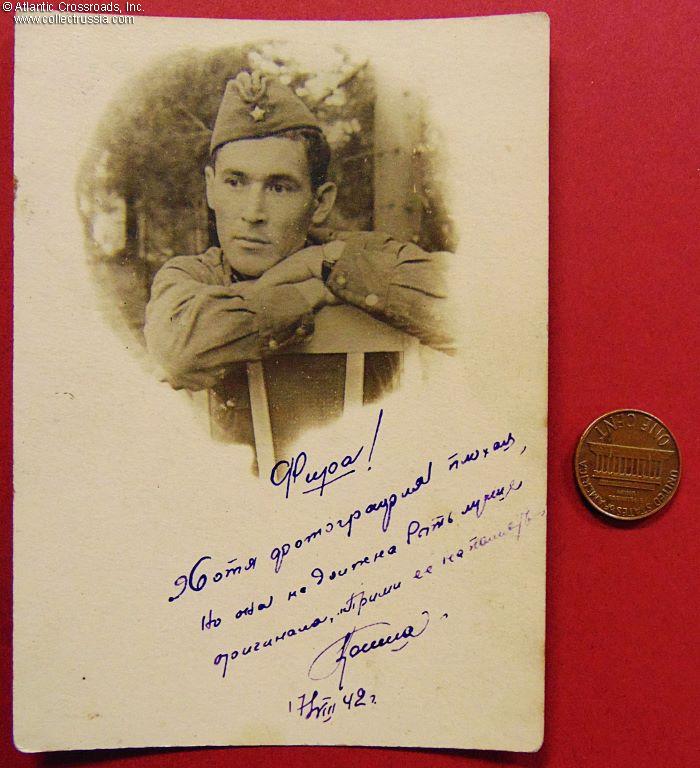 © Atlantic Crossroads, Inc.
© www.collectrussia.com
Фира!
Хотя фотография плохая,
но она не должна быть лучше
оригинала. Прими ее на память.
17/VIII 42 г.
UNITED STATES OF AMERICA
ONE CENT